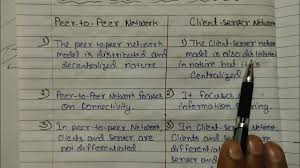 Peer-to-Peer Network
1) The peer-to-peer network
model is distributed and
decentralized nature
2) Peer-to-Peer Network focuses
on Connectivity.
3) In peer-to-peer Network,
Clients and Server are
not differentiated
Client-Server Network
1) The Client-Server
model is also
in nature but it is
Centralized
2) It focuses
information
3) In Client-Server
Clients and
are different